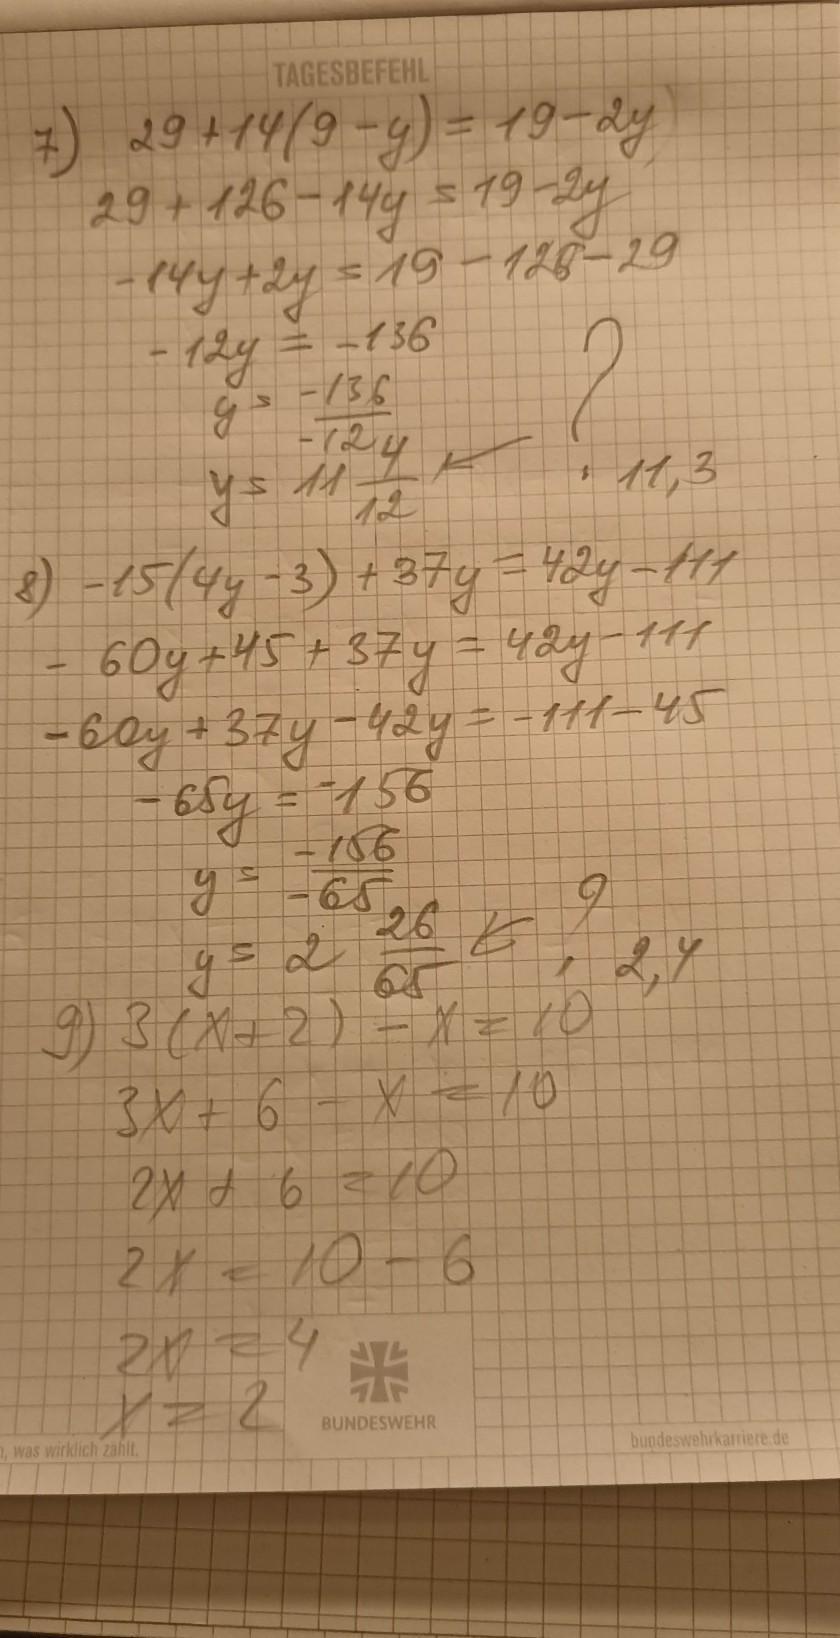 TAGESBEFEHL
7) 29+14(9-y)=19-2y
29+126-14y=19-2y
-14y+2y=19-126-29
-12y=-136
y=-136/-12
y=11 4/12 ? 11,3
8) -15(4y-3)+37y=42y-111
-60y+45+37y=42y-111
-60y+37y-42y=-111-45
-65y=-156
y=-156/-65
y=2 26/65 ? 2,4
9) 3(x+2)-x=10
3x+6-x=10
2x+6=10
2x=10-6
2x=4
x=2
BUNDESWEHR
, was wirklich zählt.
bundeswehrkarriere.de